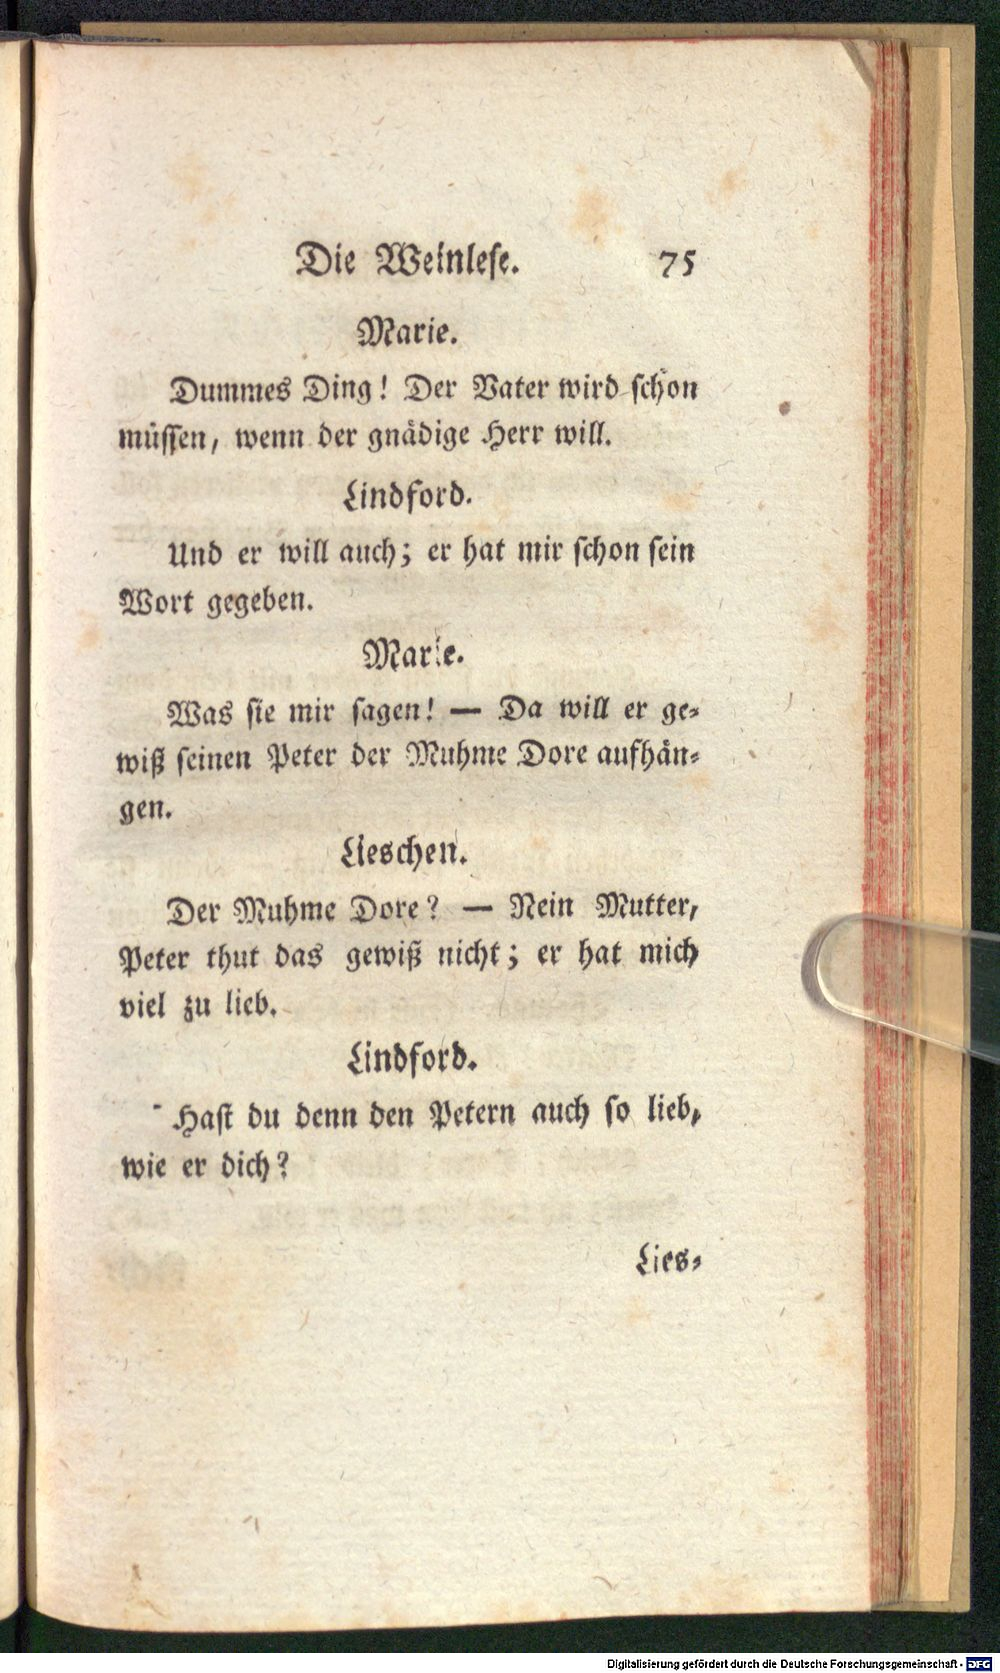 Die Weinlese. 75
Marie.
Dummes Ding! Der Vater wird schon
müssen, wenn der gnädige Herr will.
Lindford.
Und er will auch; er hat mir schon sein
Wort gegeben.
Marie.
Was sie mir sagen! — Da will er ge-
wiß seinen Peter der Muhme Dore aufhän-
gen.
Lieschen.
Der Muhme Dore? — Nein Mutter,
Peter thut das gewiß nicht; er hat mich
viel zu lieb.
Lindford.
Hast du denn den Petern auch so lieb,
wie er dich?
Lies-
Digitalisierung gefördert durch die Deutsche Forschungsgemeinschaft - DFG